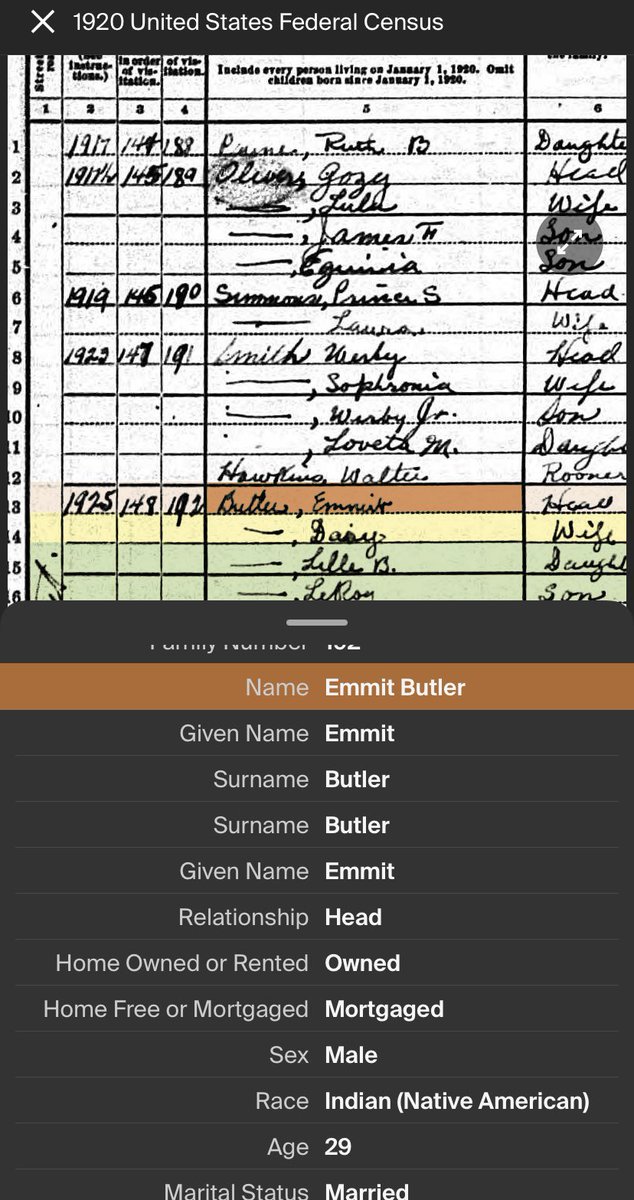 1920 United States Federal Census
Include every person living on January 1, 1920. Omit
children born since January 1, 1920.
1 2 3 4 5 6
1 1917 144 188 Ruth B Daughte
2 1917½ 145 189 Olivers, Gozy Head
3 ——, Lula Wife
4 ——, James H Son
5 ——, Equinia Son
6 1919 146 190 Simmons, Prince S Head
7 —— Laura Wife
8 1922 147 191 Smith Werby Head
9 ——, Sophronia Wife
10 ——, Wirby Jr. Son
11 , Loveta M. Daugh
12 Hawkins, Walter Roomer
13 1925 148 192 Butler, Emmit Head
14 —, Daisy Wife
15 ——, Lille B. Daught
16 ——, LeRoy Son
Family Number 192
Name Emmit Butler
Given Name Emmit
Surname Butler
Surname Butler
Given Name Emmit
Relationship Head
Home Owned or Rented Owned
Home Free or Mortgaged Mortgaged
Sex Male
Race Indian (Native American)
Age 29
Marital Status Married